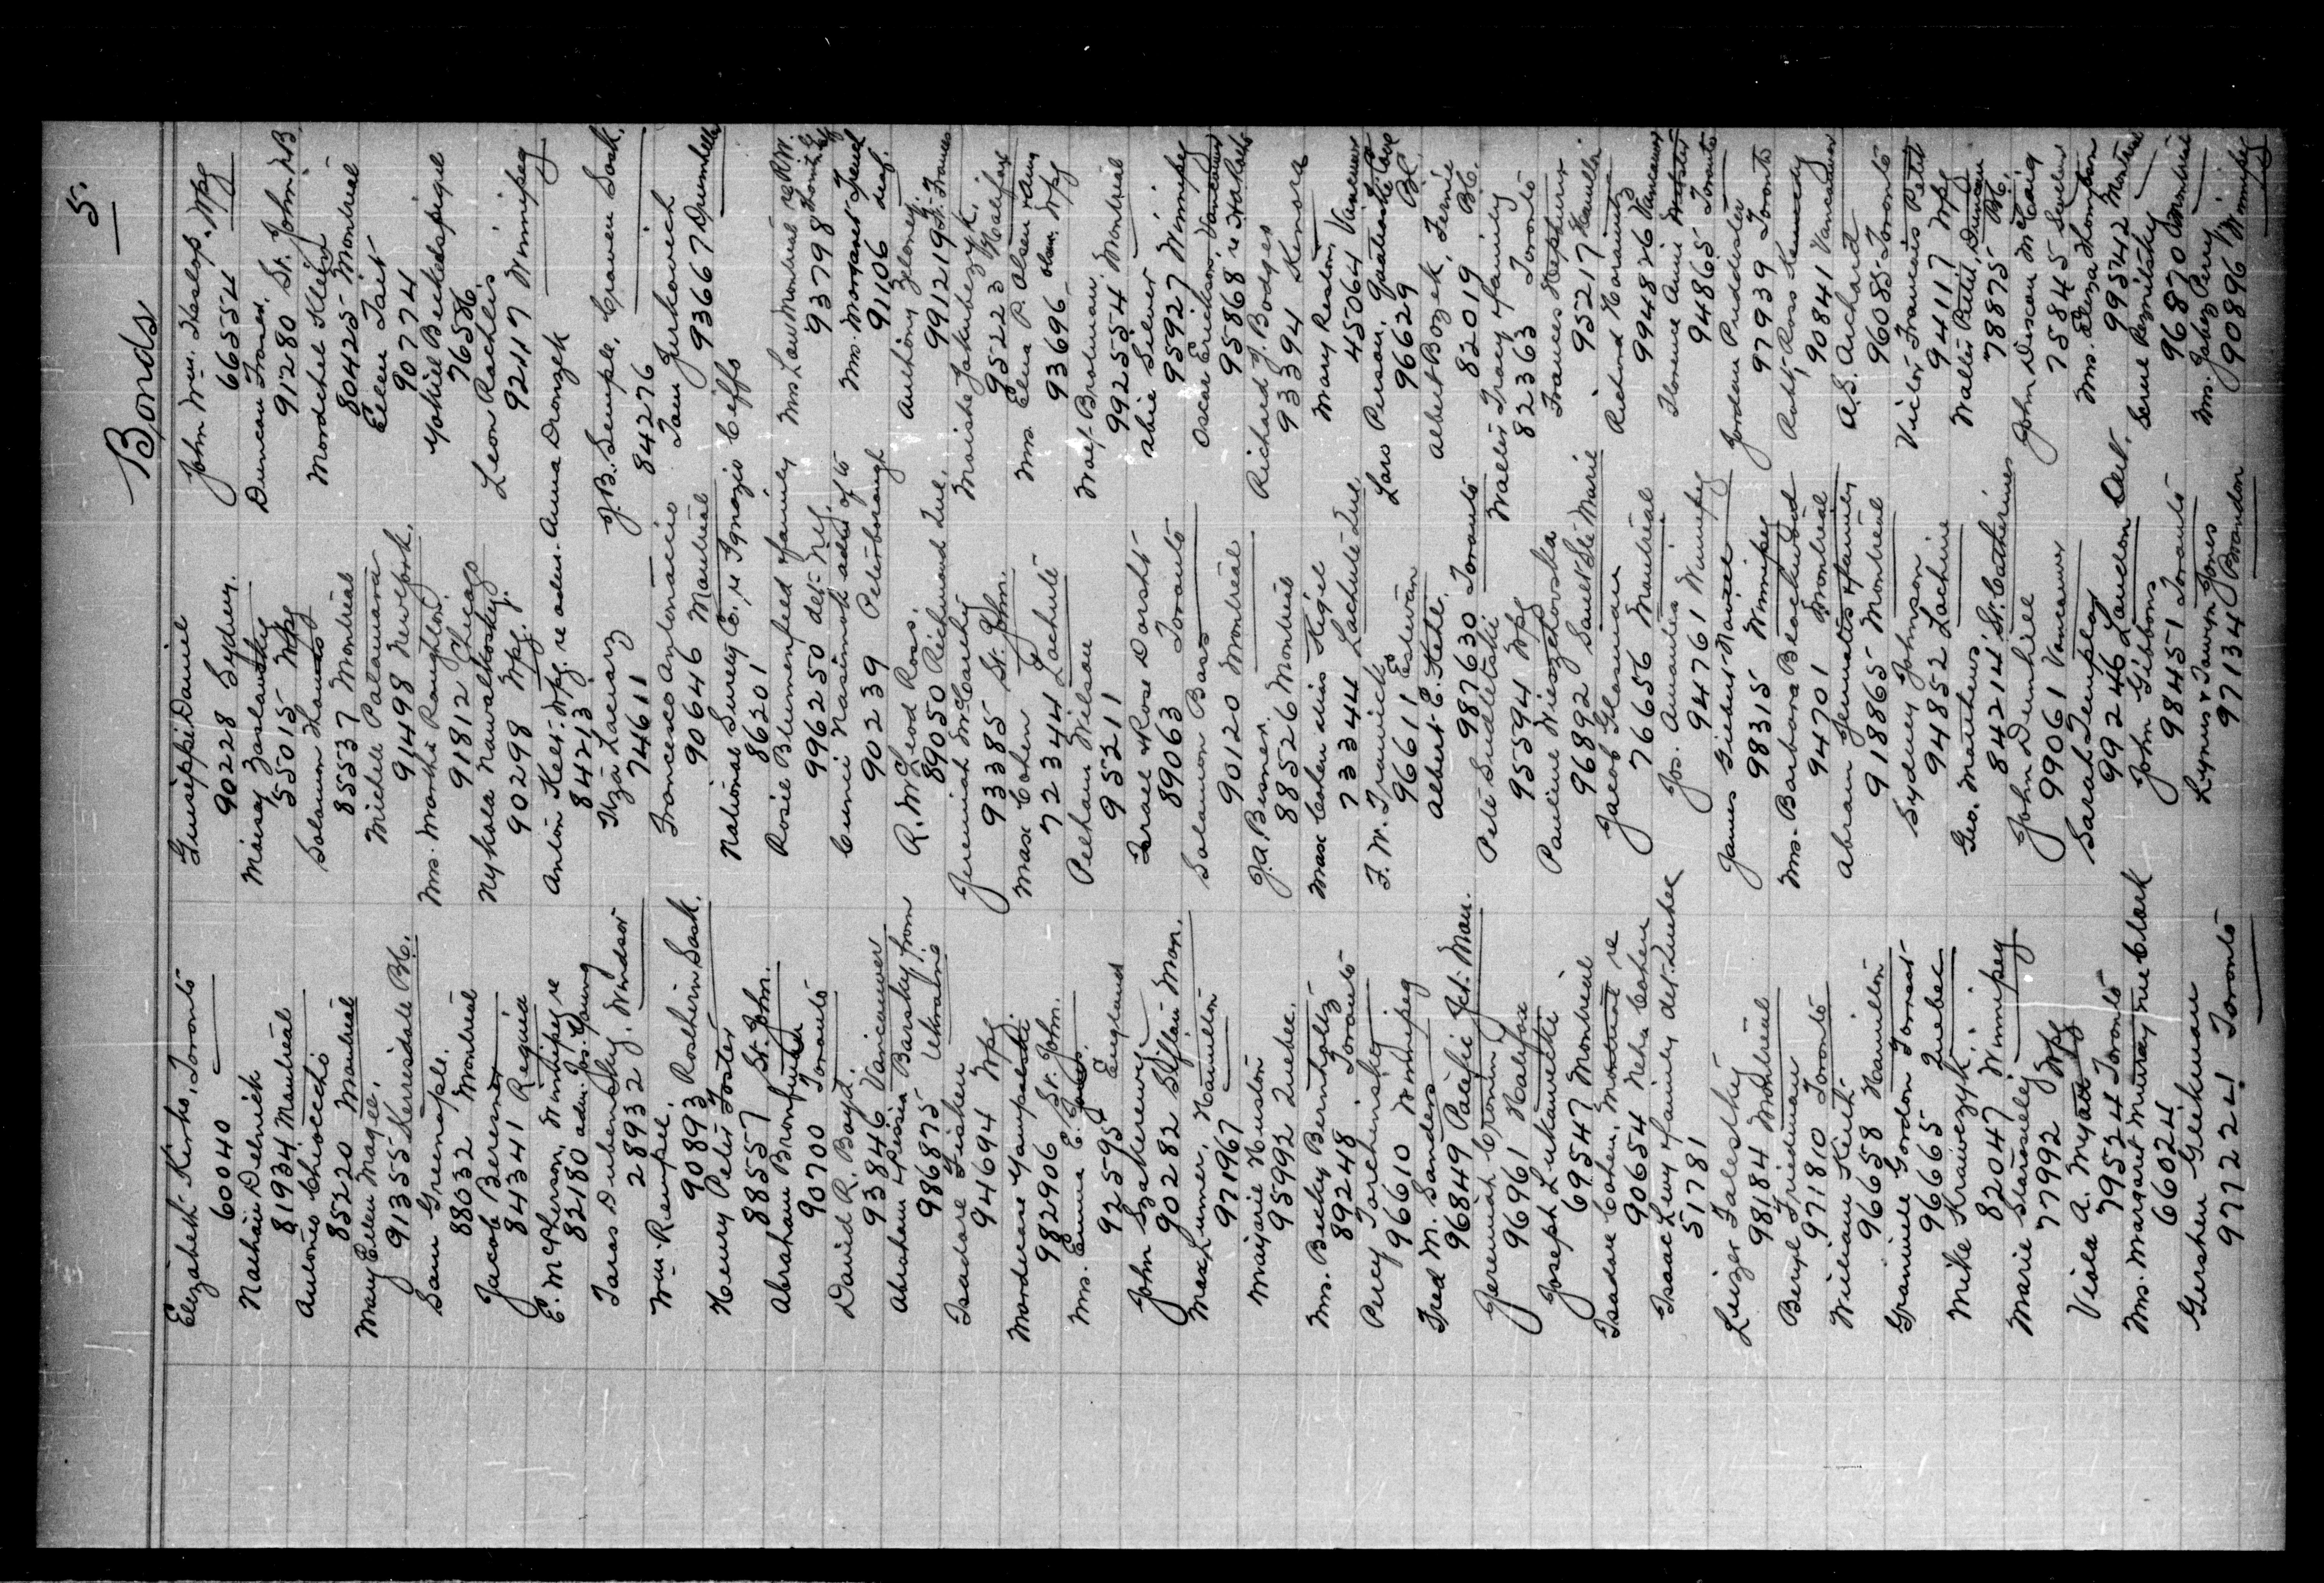 5.
Bonds
Elizabeth Kirks, Toronto
60040
Nathan Delnick
81934 Montreal
Antonio Chiocchio
85220 Montreal
Mary Ellen Magee.
91355 Kerrisdale B.C.
Sam Greenaple.
88032 Montreal
Jacob Beresner
84341 Regina
E. McPherson, Winnipeg re
82180 adm. Jos. Young
Taras Dubensky. Windsor
28932
Wm. Rempel.
90893 Rosthern Sask.
Henry Peter Foster
88557 St. John.
Abraham Bronfman
90700 Toronto
David R. Boyd.
93846 Vancouver
Abraham & Pessia Barsky from
986875 Ukraine
Isadore Fishen
94694 Wpg
Mordecare Yampolski.
982906 St. John.
Mrs. Emma E. Jones.
92595 England
John Szakerewy
90282 Sliflau Mon.
Max Lumer, Hamilton
971967
Marjorie Huston
95992 Quebec.
Mrs. Becky Bernholtz
89248 Toronto
Percy Torchinsky
96610 Winnipeg
Fred M. Sanders
96849 Pacific Jct. Man.
Jeremiah Cronin
96961 Halifax
Joseph Lukawicki
69547 Montreal
Isadore Cohen, Montreal re
90654 Neha Cohen
Issac Levy & family det. Quebec
51781
Leizer Talesky
98184 Montreal
Beryl Friedman
971810 Toronto
William Keith
96658 Hamilton
Granville Gordon Forrest
96665 Quebec
Mike Krawczyk.
82047 Winnipeg
Marie Staroscielej
77992 Wpg
Viola A. Myatt
79524 Toronto
Mrs. Margaret Murray nee Clark
66024
Gershen Geekman
977224 Toronto
Guiseppi Daniel
90228 Sydney.
Maisay Zaslavsky
55015 Wpg
Salamon Thomas
85537 Montreal
Michele Patamara
91498 New York.
Mrs. Martha Raughton.
91812 Chicago
Nykola Nawalkosky.
90298 Wpg.
Anton Keer. Wpg. re adm. Anna Dronzek
84213
Itza Lacuarz
74611
Francesco Antonaccio
90646 Montreal
National Surety Co. re Ignazio Ceffo
86201
Rosie Blumenfeed & family
996250 det. N.Y.
Cunci Nasimok adm. of to
90239 Peterborough
R. McLeod Ross.
89050 Richmond Que.
Jeremiah McCarthy
93385 St. John.
Max Cohen
72344 Lachute
Pelham Wilson
95211
Israel & Rose Dorsht
89063 Toronto
Solomon Bass
90120 Montreal
J.A. Besner.
88526 Montreal
Max Cohen alias Kigel
73344 Lachute Que.
F.W. Tranick
96611 Estevan
Albert E. Kehe.
987630 Toronto
Pete Sudletskii
95594 Wpg
Pauline Wieszchowska
96892 Sault Ste Marie
Jacob Glassman
76656 Montreal
Jos. Amantes
94761 Winnipeg
James Giedent Naisel
98315 Winnipeg
Mrs. Barbara Blackwood
94701 Montreal
Abram Jeunates & family
918865 Montreal
Sydney Johnson
94852 Lachine
Geo. Matthews.
84214 St. Catherines
John Dunhill
99061 Vancouver
Sarah Templay
99246 London Ont.
John Gibbons
98451 Toronto
Lynus & Tamryn Jones
97134 Brandon
John Wm. Haslop. Wpg
66554
Duncan Framer.
91280 St. John N.B.
Mordchel Klein
80425 Montreal
Eileen Tait
90774
Yokiel Beckelspigel
76586
Leon Rachlis
92417 Winnipeg
J.B. Semple, Craven Sask.
84276
Tom Jurkowich
93667 Drumheller
Mrs. Low Montreal re R.W.
93798
Mrs. Margaret French
91106 deaf.
Anthony Zeloney
991219 Ft. Frances
Moishe Jakubczyk.
95223 Halifax
Mrs. Elna P. Olsen & Amy
93696 Olsen. Wpg
Max Brotman.
992554 Montreal
Abie Silver
95927 Winnipeg
Oscar Erickson, Vancouver
95868
Richard J. Bodges
93394 Kenora
Mary Reston
45064 Vancouver
Lars Person.
96629 B.C.
Albert Bozek, Fernie
82019 B.C.
Walter Tracy & family
82363 Toronto
Frances Hepburn
95217 Hamilton
Richard Haraunts
994826 Vancouver
Florence Annie Webster
94865 Toronto
Jordean Puddester
97939 Toronto
Robt. Ross Kennedy
90841 Vancouver
A.S. Archard
96085 Toronto
Victor Francois Petit
94117 Wpg
Walter Petit, Duncan
78875 B.C.
John Discon McCaig
75845
Mrs. Eliza Thompson
995442 Montreal
Serne Reznitsky
96870 Montreal
Mrs. Jabez Perry
90896 Winnipeg